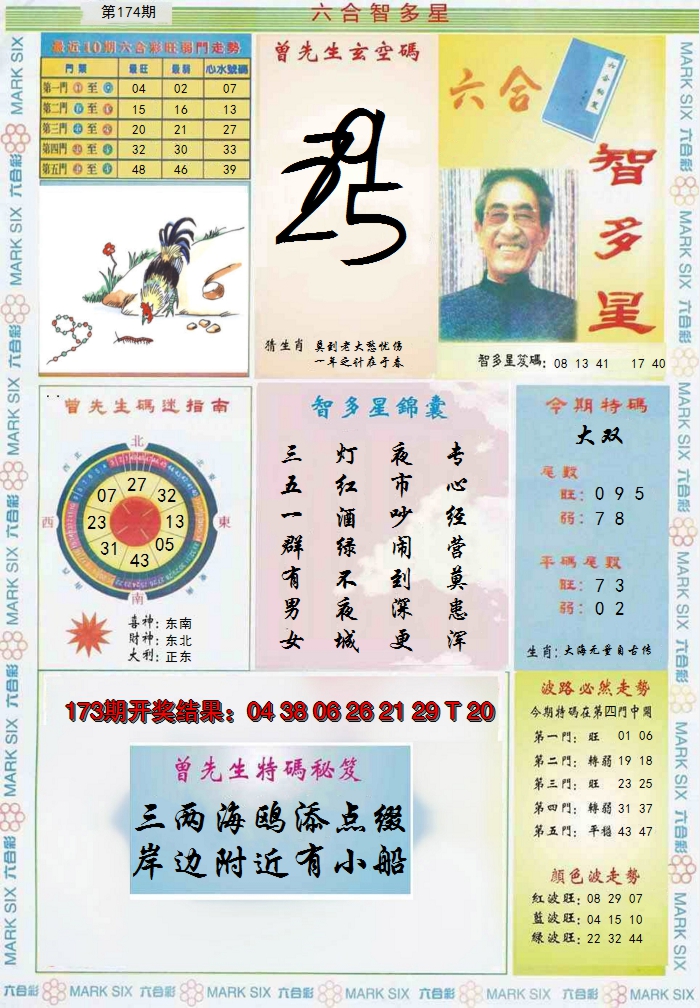 第174期
六合智多星
最近10期六合彩旺弱門走勢
門類 最旺 最弱 心水號碼
第一門 至 04 02 07
第二門 至 15 16 13
第三門 至 20 21 27
第四門 至 32 30 33
第五門 至 48 46 39
曾先生玄空碼
猜生肖 莫到老大愁忧伤
一年之计在于春
六合
智多星
智多星笈碼: 08 13 41 17 40
曾先生碼迷指南
北
27
07 32
西 23 13 東
31 05
43
南
喜神: 东南
財神: 东北
大利: 正东
智多星錦囊
三五一群有男女
灯红酒绿不夜城
夜市吵闹到深更
专心经营莫患浑
今期特碼
大双
尾數
旺: 0 9 5
弱: 7 8
平碼尾數
旺: 7 3
弱: 0 2
生肖: 大海无量自古传
173期开奖结果: 04 38 06 26 21 29 T 20
曾先生特碼秘笈
三两海鸥添点缀
岸边附近有小船
波路必然走勢
今期特碼在第四門中開
第一門: 旺 01 06
第二門: 轉弱 19 18
第三門: 旺 23 25
第四門: 轉弱 31 37
第五門: 平穩 43 47
顏色波走勢
紅波旺: 08 29 07
藍波旺: 04 15 10
綠波旺: 22 32 44
MARK SIX 六合彩